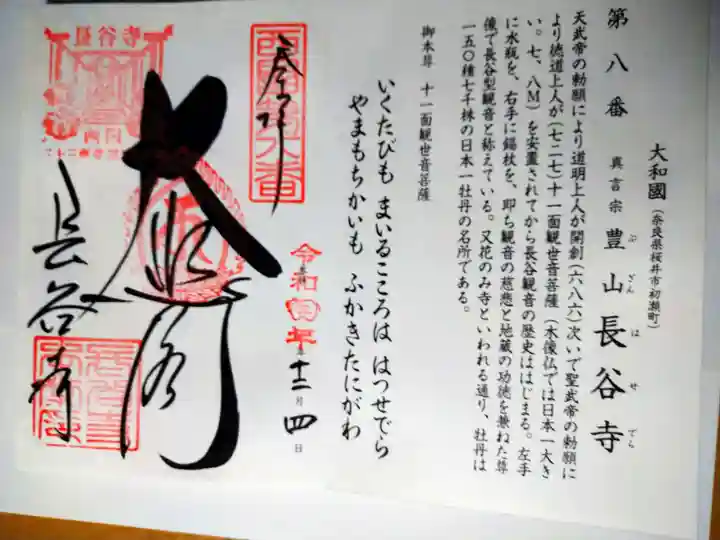 第八番 真言宗 豊山長谷寺
ぶざん はせでら
大和國(奈良県桜井市初瀬町)
天武帝の勅願により道明上人が開創(六八六)次いで聖武帝の勅願に
より徳道上人が(七二七)十一面観世音菩薩(木像仏では日本一大き
い。七、八M)を安置されてから長谷観音の歴史ははじまる。左手
に水瓶を、右手に錫杖を、即ち観音の慈悲と地蔵の功徳を兼ねた尊
像で長谷型観音と称えている。又花のみ寺といわれる通り、牡丹は
一五〇種七千株の日本一牡丹の名所である。
御本尊 十一面観世音菩薩
いくたびも まいるこころは はつせでら
やまもちかいも ふかきたにがわ
西國第八番
奉拝
令和 年十二月四日
大悲閣
長谷寺